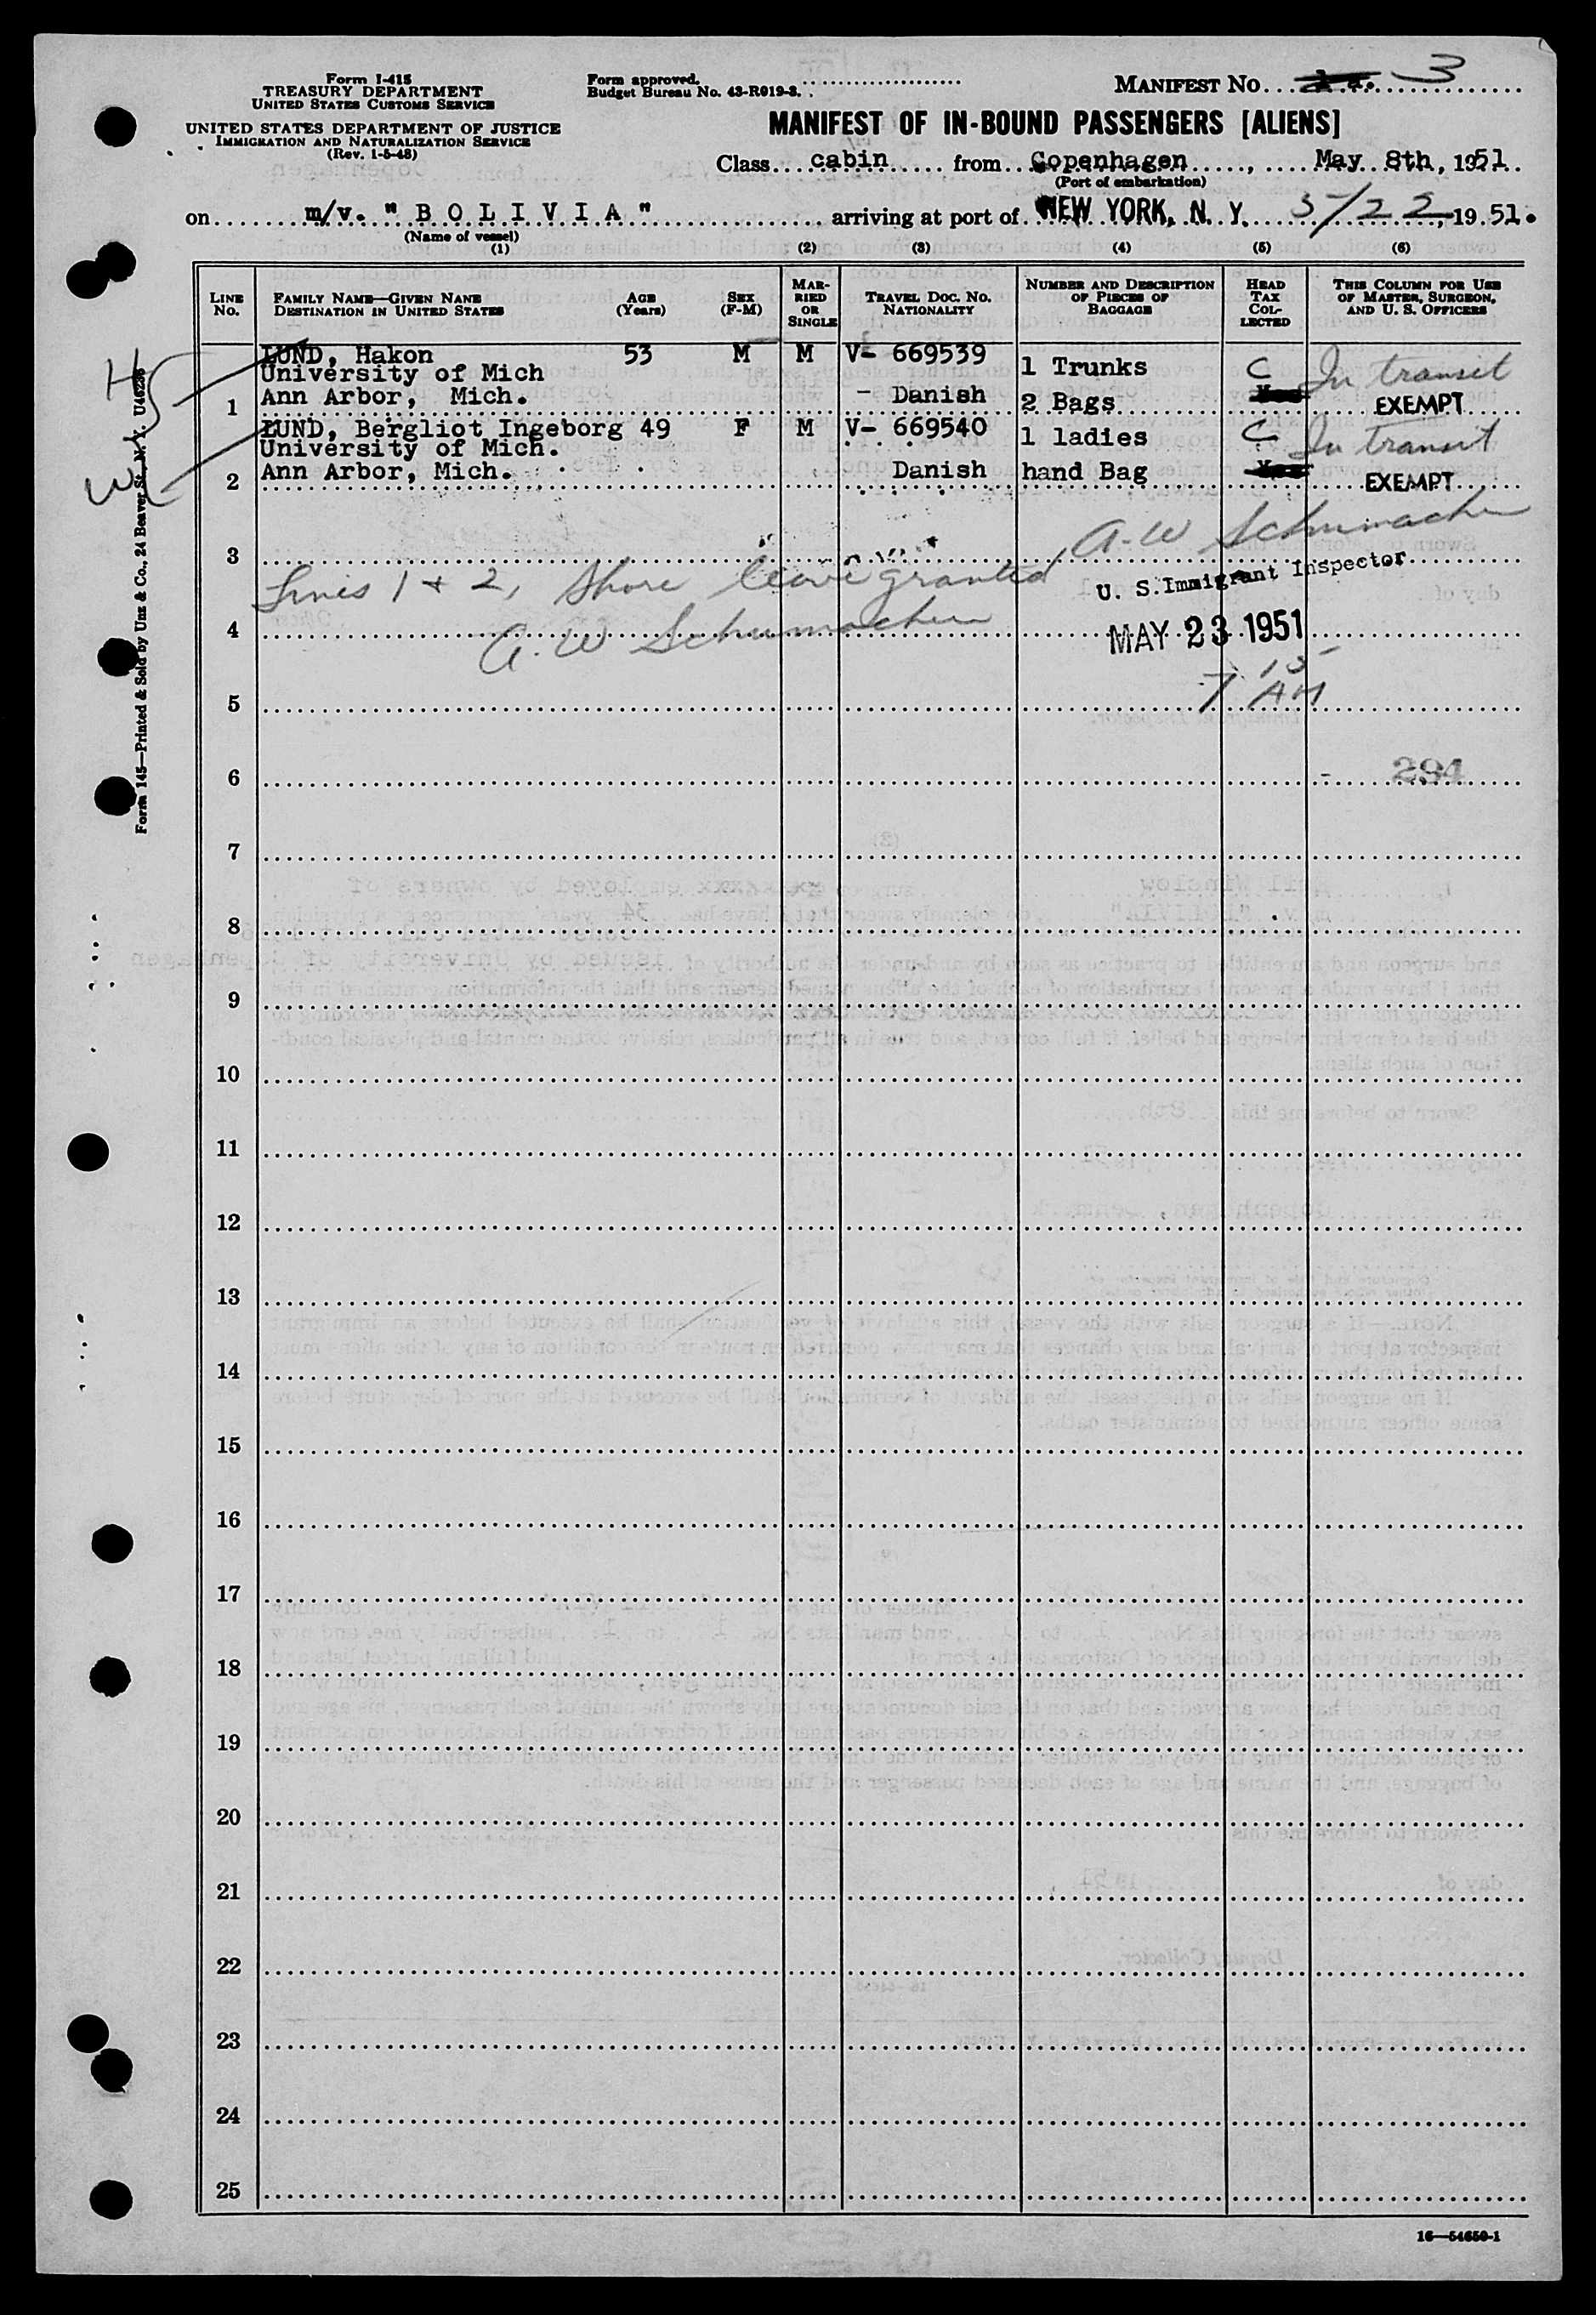 Form I-415
TREASURY DEPARTMENT
UNITED STATES CUSTOMS SERVICE
UNITED STATES DEPARTMENT OF JUSTICE
IMMIGRATION AND NATURALIZATION SERVICE
(Rev. 1-5-48)
Form approved.
Budget Bureau No. 43-R019-3.
MANIFEST NO. 3
MANIFEST OF IN-BOUND PASSENGERS [ALIENS]
Class cabin from Copenhagen, May 8th, 1951
(Port of embarkation)
on m/v. "BOLIVIA" arriving at port of NEW YORK, N. Y. 5/22, 1951.
(Name of vessel)
(1) (2) (3) (4) (5) (6)
LINE No. FAMILY NAME—GIVEN NAME DESTINATION IN UNITED STATES AGE (Years) SEX (F-M) MARRIED OR SINGLE TRAVEL DOC. NO. NATIONALITY NUMBER AND DESCRIPTION OF PIECES OF BAGGAGE HEAD TAX COLLECTED THIS COLUMN FOR USE OF MASTER, SURGEON, AND U. S. OFFICERS
LUND, Hakon 53 M M V- 669539 1 Trunks C In transit
University of Mich
1 Ann Arbor, Mich. - Danish 2 Bags EXEMPT
LUND, Bergliot Ingeborg 49 F M V- 669540 1 ladies C In transit
University of Mich.
2 Ann Arbor, Mich. Danish hand Bag EXEMPT
A.W Schumacher
3
Lines 1 + 2, Shore leave granted
U. S. Immigrant Inspector
4 A.W Schumacher MAY 23 1951
7 15 AM
5
6 294
7
8
9
10
11
12
13
14
15
16
17
18
19
20
21
22
23
24
25
16—54650-1
H
W
Form 145—Printed & Sold by Unz & Co., 24 Beaver St., N. Y. U46236